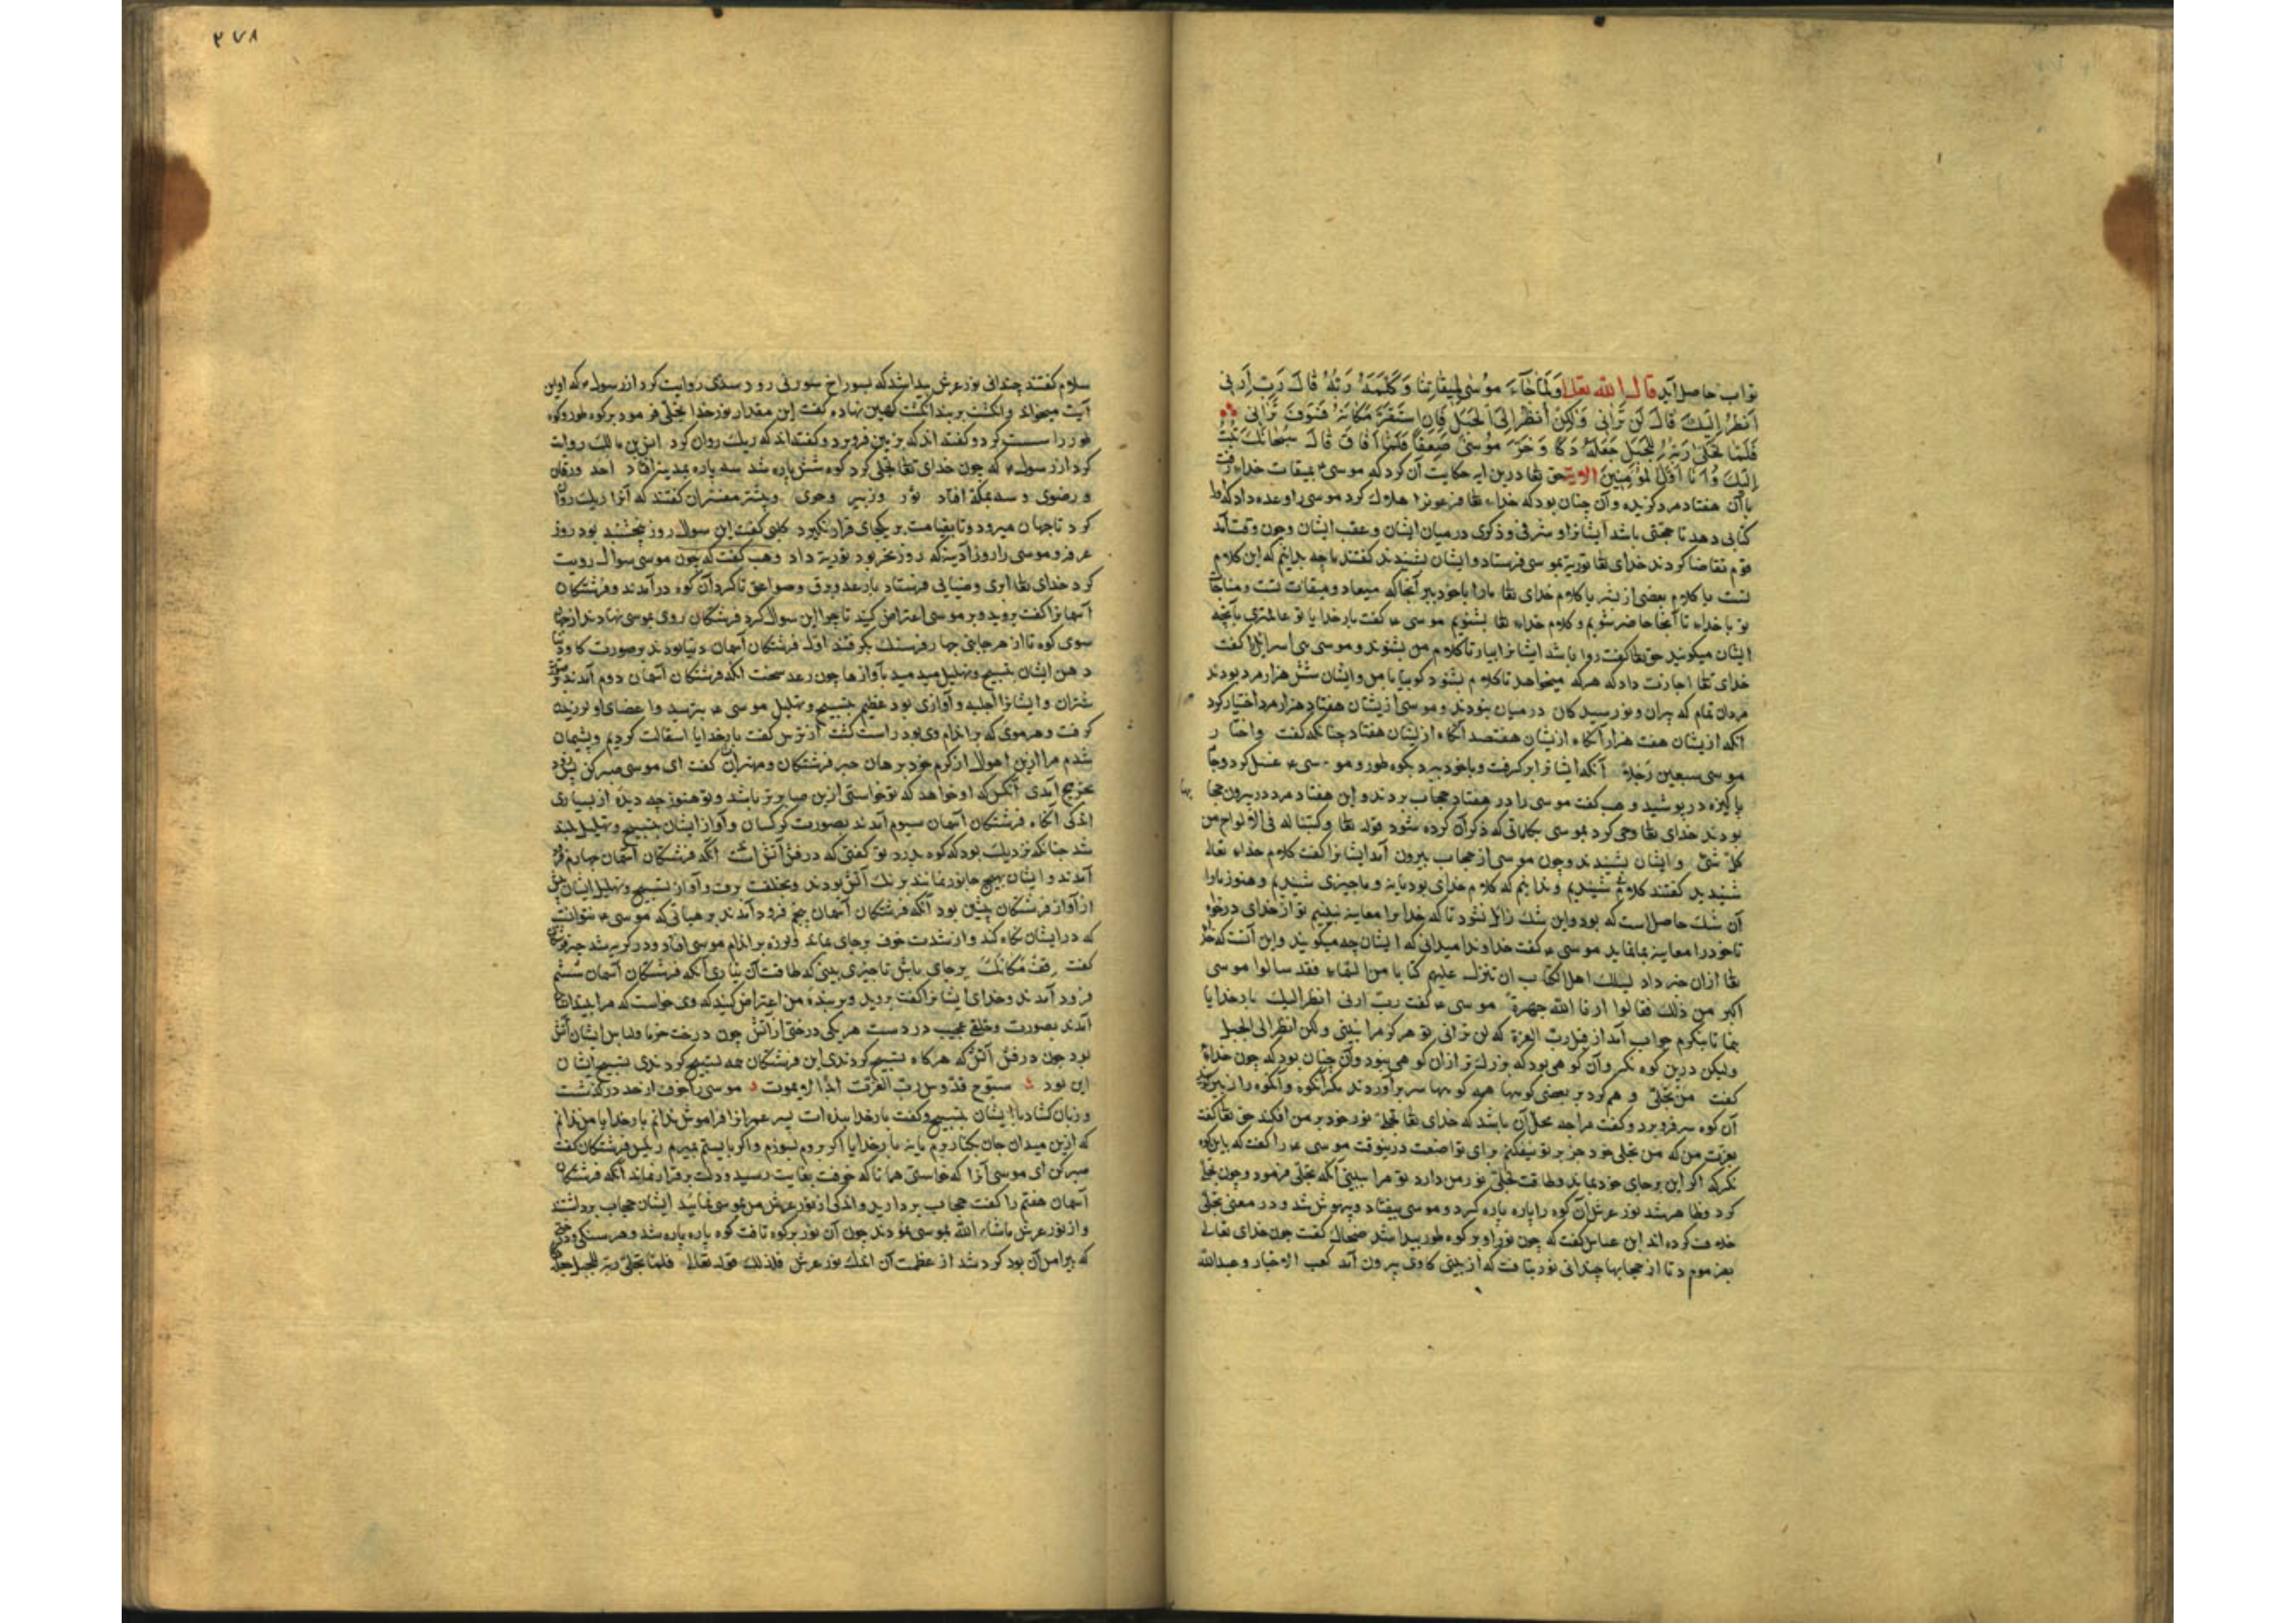 ثواب حاصل آید قال الله تعالی وَلَمَّا جَآءَ مُوسٰی لِمِیقَاتِنَا وَکَلَّمَهُ رَبُّهُ قَالَ رَبِّ اَرِنِی
اَنظُرْ اِلَیْکَ قَالَ لَن تَرَانِی وَلٰکِنِ انْظُرْ اِلَی الْجَبَلِ فَاِنِ اسْتَقَرَّ مَکَانَهُ فَسَوفَ تَرَانِی
فَلَمَّا تَجَلَّی رَبُّهُ لِلْجَبَلِ جَعَلَهُ دَکًّا وَخَرَّ مُوسٰی صَعِقًا فَلَمَّا اَفَاقَ قَالَ سُبْحَانَکَ تُبْتُ
اِلَیْکَ وَاَنَا اَوَّلُ المُؤمِنِینَ الایة حق تعا درین ایه حکایت آن کرد که موسی ع بمیقات خداء رفت
با آن هفتاد مرد کزیده وآن چنان بود که خداء تعا فرعونرا هلاک کرد موسی را وعده داد که
کتابی دهد تا حجتی باشد ایشانرا و شرفی وذکری درمیان ایشان و عقب ایشان وچون وقت آمد
قوم تقاضا کردند خدای تعا توریة بموسی فرستاد وایشان بشنیدند کفتند ما چه دانیم که این کلام
تست یا کلام بعضی از بشر یا کلام خدای تعا مارا با خود ببر آنجا که میعاد و میقات تست ومناجات
تو با خداء تا آنجا حاضر شویم و کلام خداء تعا بشنویم موسی ع کفت بار خدایا تو عالمتری بآنچه
ایشان میکویند حق تعا کفت روا باشد ایشانرا بیار تا کلام من بشنوند و موسی بنی اسرائیل را کفت
خدای تعا اجازت داد که هرکه میخواهد تا کلام بشنود کو بیا با من وایشان شش هزار مرد بودند
مردان تمام که پیران و نورسیدکان درمیان نبودند وموسی ازیشان هفتاد هزار مرد اختیار کرد
آنکه ازیشان هفت هزار آنکاه ازیشان هفتصد آنکاه ازیشان هفتاد چنانکه کفت واختار
موسی سبعین رَجُلاً آنکه ایشانرا برکرفت وبا خود ببرد بکوه طور و موسی ع غسل کرد و جا
پاکیزه درپوشید وهب کفت موسی را در هفتاد حجاب بردند و این هفتاد مرد در بیرون حجا
بودند خدای تعا وحی کرد بموسی بکلماتی که ذکر آن کرده شود قوله تعا وکتبنا له فی الالواح من
کلّ شیٔ وایشان بشنیدند وچون موسی از حجاب بیرون آمد ایشانرا کفت کلام خداء تعالی
شنیدید کفتند کلام شنیدیم وندانیم که کلام خدای بود یا نه و ما چیزی شنیدیم و هنوز مارا
آن شک حاصل است که بود و این شک زائل نشود تا که خدا برا معاینه نبینیم تو از خدای درخواه
تا خود را معاینه بما نماید موسی ع کفت خداوندا میدانی که ایشان چه میکویند واین آنست که خدا
تعا ازان خبر داد یسئلک اهل الکتاب ان تنزل علیهم کتابا من السماء فقد سالوا موسی
اکبر من ذلک فقالوا ارنا الله جهرة موسی ع کفت ربّ ارنی انظر الیک بار خدایا
بنما تا بنکرم جواب آمد از قبل ربّ العزة که لن ترانی تو هرکز مرا نبینی ولکن انظر الی الجبل
ولیکن درین کوه نکر وآن کوهی بود که بزرکتر ازان کوهی نبود وآن چنان بود که چون خداء
کفت من تجلّی و هم کرد بر بعضی کوهها همه کوهها سر برآوردند مکر آنکوه وآنکوه را زبیر
آن کوه سر فروبرد وکفت مرا چه محل آن باشد که خدای تعا تجلّی نور خود بر من افکند حق تعا کفت
بعزت من که من تجلی خود جز بر تو نیفکنم برای تواضعت درینوقت موسی ع را کفت که باین کوه
نکر که اکر این برجای خود بماند وطاقت تجلّی نور من دارد تو مرا ببینی آنکه تجلّی فرمود وچون تجلّی
کرد وظاهر شد نور عرش آن کوه را پاره پاره کرد و موسی بیفتاد وبیهوش شد و در معنی تجلّی
خلاف کرده اند ابن عباس کفت که چون نور او بر کوه طور پیدا شد ضحاک کفت چون خدای تعالی
بفرمود تا از حجابها چندانی نور بتافت که از بینی کاوی بیرون آید کعب الاخبار و عبدالله
۲۷۸
سلام کفتند چندانی نور عرش پیدا شد که بسوراخ سوزنی رود سدی روایت کرد از رسول ع که او این
آیت میخواند وانکشت بر بند انکشت کهین نهاده کفت این مقدار نور خدا تجلّی فرمود بر کوه طور و کوه
طور را پست کرد وکفته اند که بزمین فروبرد وکفته اند که ریک روان کرد انس بن مالک روایت
کرد از رسول ع که چون خدای تعا تجلی کرد کوه شش پاره شد سه پاره بمدینه افتاد احد ورقان
و رضوی و سه بمکه افتاد ثور وثبیر وحری وبیشتر مفسران کفتند که آنرا ریک روان
کرد تا جهان میرود وتا بقیامت بر یکجای قرار نکیرد کلبی کفت این سوال روز پنجشنبه بود روز
عرفه وموسی را روز آدینه که روز نحر بود توریة داد وهب کفت که چون موسی سوال رویت
کرد خدای تعا ابری وضبابی فرستاد با رعد و برق وصواعق تا کرد آن کوه درآمدند و فرشتکان
آسمانرا کفت بروید و بر موسی اعتراض کنید تا چرا این سوال کرد فرشتکان روی بموسی نهادند از چهار
سوی کوه تا از هر جانبی چهار فرسنک بکرفتند اوّل فرشتکان آسمان دنیا بودند برصورت کاو
دهن ایشان تسبیح وتهلیل میدمید بآوازها چون رعد سخت آنکه فرشتکان آسمان دوم آمدند
شیران وایشانرا جلبه وآوازی بود عظیم بتسبیح وتهلیل موسی ع بترسید واعضای او لرزیدن
کرفت وهر موی که بر اندام وی بود راست کشت از ترس کفت بار خدایا استقالت کردم وپشیمان
شدم مرا ازین اهوال از کرم خود برهان حبر فرشتکان ومهتران کفت ای موسی صبر کن
بحریج آمدی آنکس که او خواهد که تو خواستی ازین صابرتر باشد وتو هنوز چه دیدهٔ از بسیاری
اندکی آنکاه فرشتکان آسمان سیوم آمدند بصورت کرکسان وآواز ایشان بتسبیح وتهلیل بلند
شد چنانکه نزدیک بود که کوه بدرد تو کفتی که در فش آتش است آنکه فرشتکان آسمان چهارم
آمدند وایشان بهیچ جانور نمانند برنک آتش بودند وبخلقت برف وآواز تسبیح وتهلیل ایشان
از آواز فرشتکان پیشین بود آنکه فرشتکان آسمان پنجم فرود آمدند بر هیاتی که موسی ع نتوانست
که در ایشان نکاه کند واز شدت خوف برجای بماند ولرزه بر اندام موسی افتاد ودر کریه شد
کفت قِفْ مَکَانَکَ برجای باش تا چیزی بینی که طاقت آن نیاری آنکه فرشتکان آسمان ششم
فرود آمدند وخدای ایشانرا کفت بروید وبر بندهٔ من اعتراض کنید که وی خواست که مرا ببیند
آمدند بصورت وخلقی عجیب در دست هر یکی درختی از آتش چون درخت خرما ولباس ایشان آتش
بود چون درفش آتش که هرکاه تسبیح کردندی این فرشتکان همه تسبیح کردندی تسبیح ایشان
این بود سبّوح قدّوس ربّ العزّت ابداً لا یموت موسی را خوف از حد درکذشت
وزبان کشاد با ایشان بتسبیح وکفت بار خدا بنده ات پسر عمرانرا فراموش مکن بار خدایا من ندانم
که ازین میدان جان بکنار برم یا نه بار خدایا اکر بروم بسوزم واکر بایستم بمیرم رئیس فرشتکان کفت
صبر کن ای موسی آنرا که خواستی همانا که خوفت بغایت رسید ودلت برقرار نماند آنکه فرشتکان
آسمان هفتم را کفت حجاب بردارید واندکی از نور عرش من بموسی نمائید ایشان حجاب برداشتند
واز نور عرش ماشاء الله بموسی نمودند چون آن نور بر کوه تافت کوه پاره پاره شد وهر سنکی و درختی
که پیرامن آن بود کرد شد از عظمت آن اندک نور عرش فلذلک قوله تعالی فلمّا تجلّی ربّه للجبل جعله